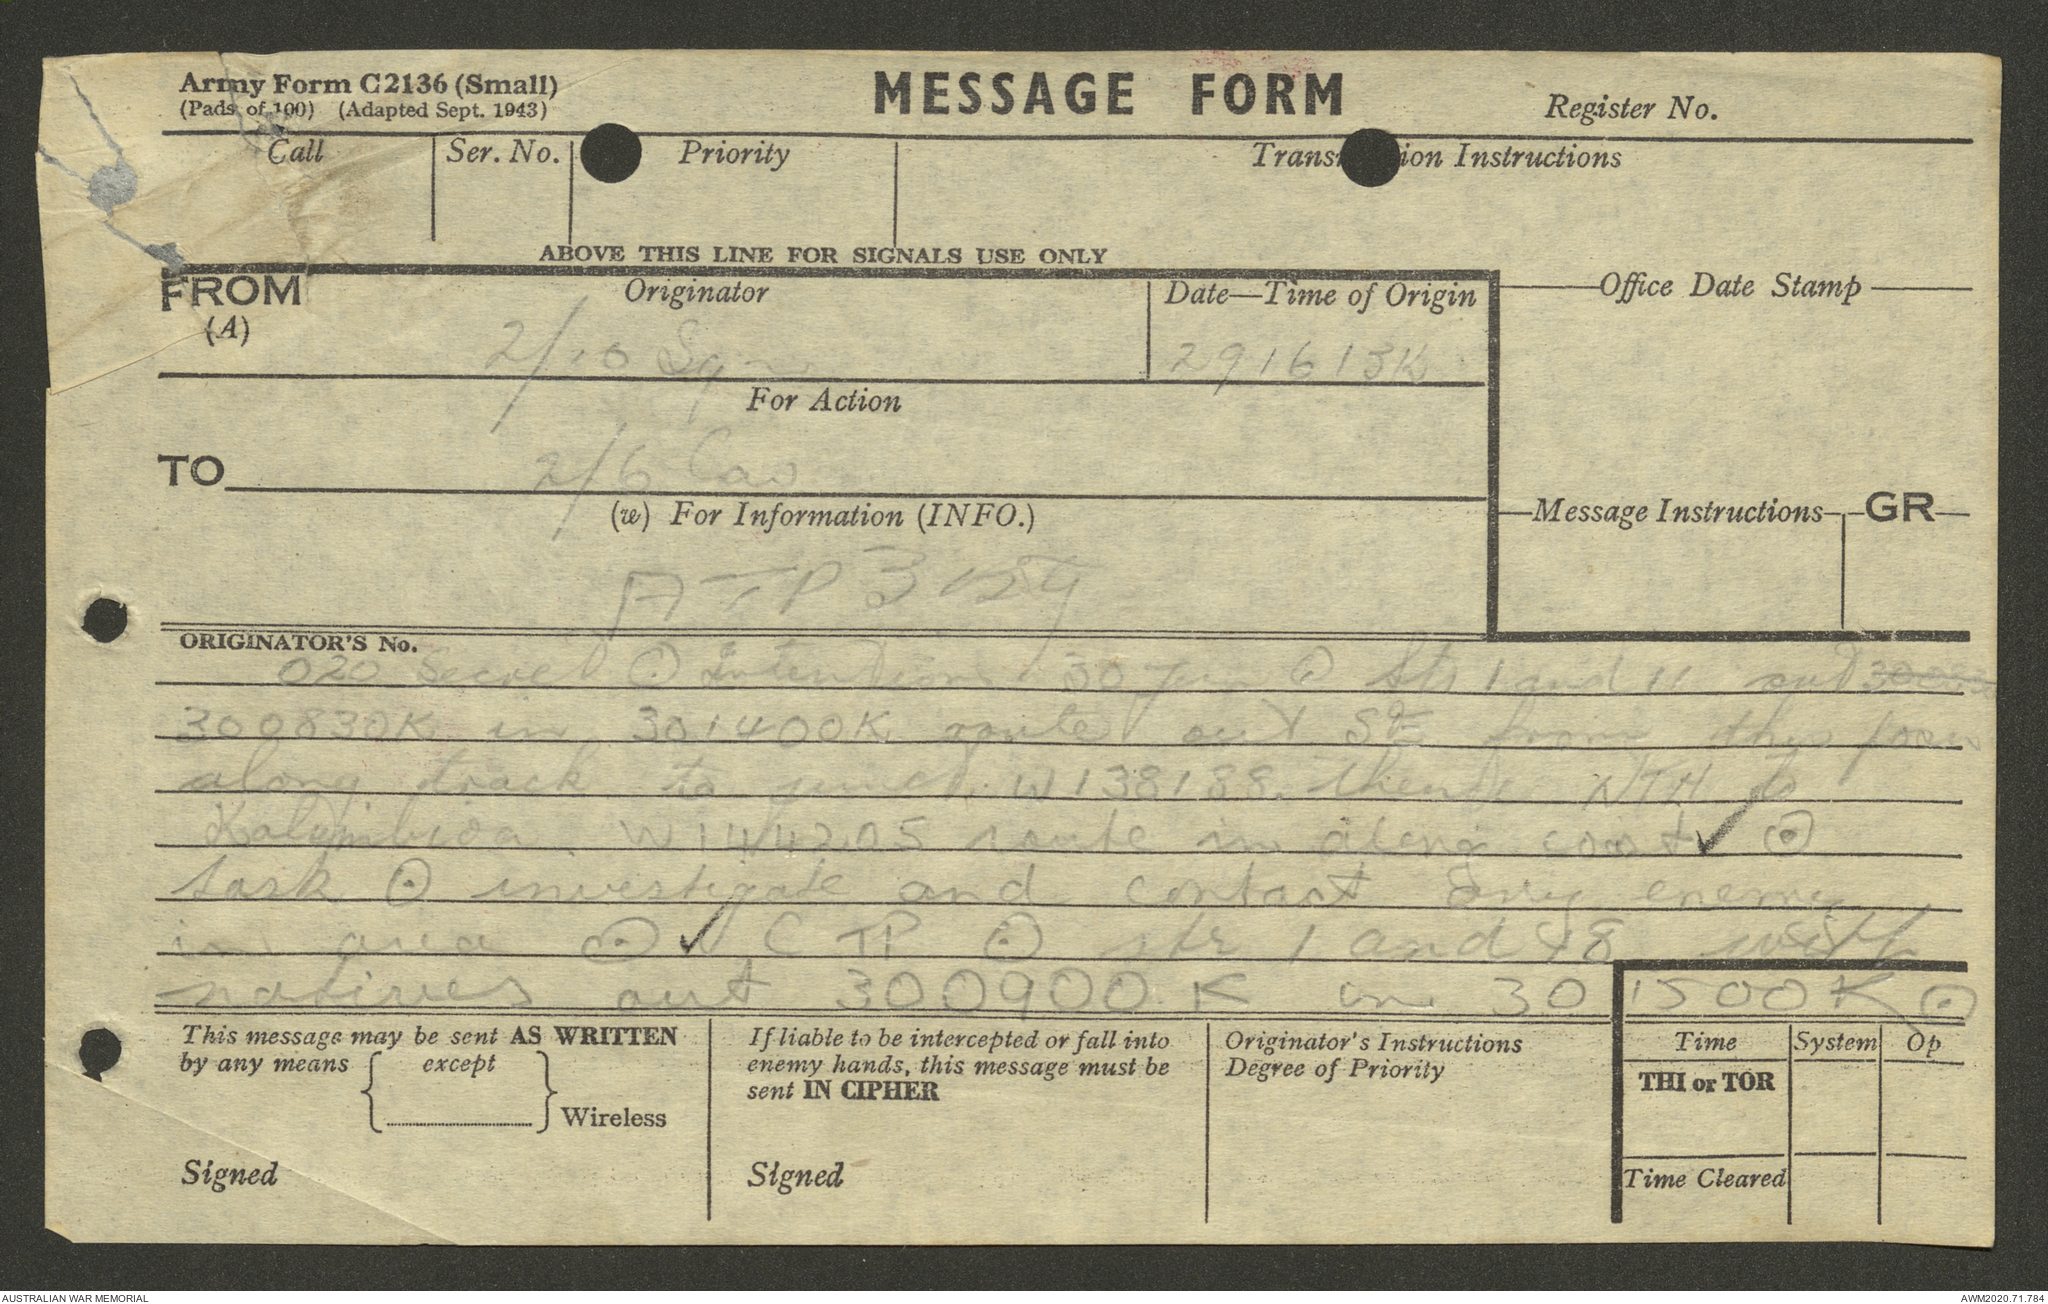 Army Form C2136 (Small)
(Pads of 100) (Adapted Sept. 1943)
MESSAGE FORM
Register No.
Call
Ser. No.
Priority
Transmission Instructions
ABOVE THIS LINE FOR SIGNALS USE ONLY
FROM
(A)
Originator
2/10 Sqn
Date—Time of Origin
291613K
Office Date Stamp
For Action
TO
2/6 Cav
(W) For Information (INFO.)
Message Instructions
GR
ATP 3
ORIGINATOR'S No.
020 Secret ⊙ Intentions 30 Jun ⊙ 1 and 11 out
300830K in 301400K route out Sth from this posn
along track to junct. W138188. thence NTH to
W144205 route in along coast ⊙
task ⊙ investigate and contact any enemy
in area ⊙ C TP ⊙ 1 and 48 with
natives out 300900K in 301500K ⊙
This message may be sent AS WRITTEN
by any means except
Wireless
Signed
If liable to be intercepted or fall into
enemy hands, this message must be
sent IN CIPHER
Signed
Originator's Instructions
Degree of Priority
Time
System
Op
THI or TOR
Time Cleared
AUSTRALIAN WAR MEMORIAL
AWM2020.71.784